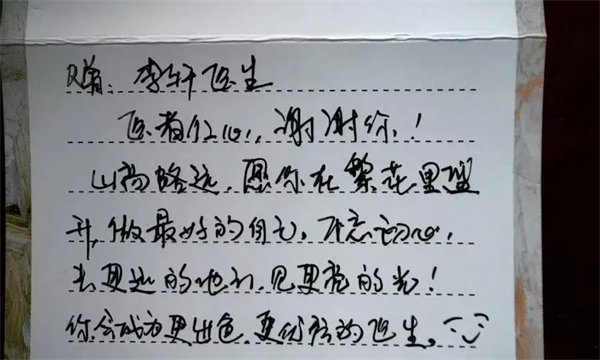 赠:李轩医生
医者仁心,谢谢你!
山高路远,愿你在繁花里盛
开,做最好的自己,不忘初心,
去更远的地方,见更亮的光!
你会成为更出色,更优秀的医生。